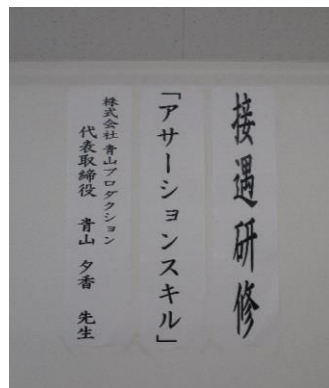 接遇研修
「アサーションスキル」
株式会社 青山プロダクション
代表取締役 青山 夕香 先生